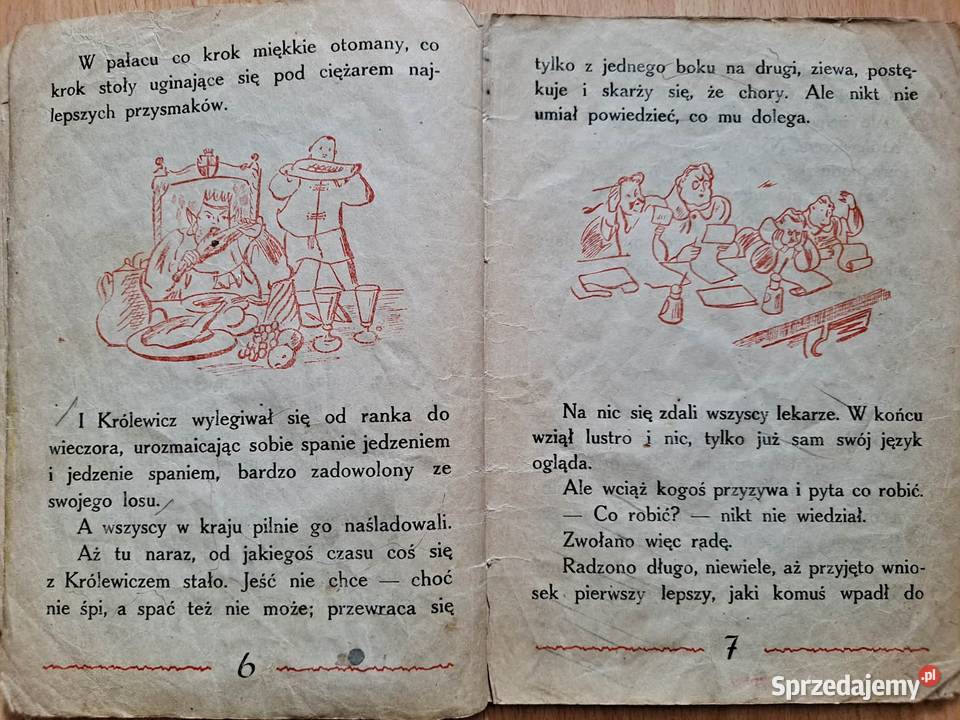 W pałacu co krok miękkie otomany, co
krok stoły uginające się pod ciężarem naj-
lepszych przysmaków.
I Królewicz wylegiwał się od ranka do
wieczora, urozmaicając sobie spanie jedzeniem
i jedzenie spaniem, bardzo zadowolony ze
swojego losu.
A wszyscy w kraju pilnie go naśladowali.
Aż tu naraz, od jakiegoś czasu coś się
z Królewiczem stało. Jeść nie chce — choć
nie śpi, a spać też nie może; przewraca się
6
tylko z jednego boku na drugi, ziewa, postę-
kuje i skarży się, że chory. Ale nikt nie
umiał powiedzieć, co mu dolega.
Na nic się zdali wszyscy lekarze. W końcu
wziął lustro i nic, tylko już sam swój język
ogląda.
Ale wciąż kogoś przyzywa i pyta co robić.
— Co robić? — nikt nie wiedział.
Zwołano więc radę.
Radzono długo, niewiele, aż przyjęto wnio-
sek pierwszy lepszy, jaki komuś wpadł do
7
Sprzedajemy.pl